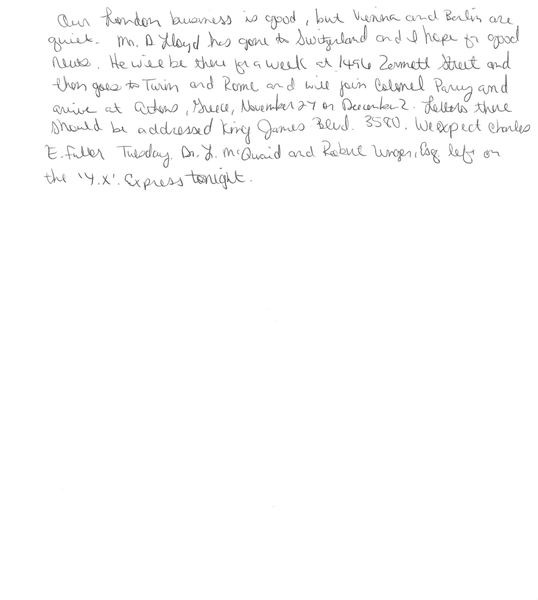 Our London business is good, but Vienna and Berlin are
quiet. Mr. D. Lloyd has gone to Switzerland and I hope for good
news. He will be there for a week at 1496 Zermott Street and
then goes to Turin and Rome and will join Colonel Parry and
arrive at Athens, Greece, November 27 or December 2. Letters there
should be addressed King James Blvd. 3580. We expect Charles
E. Fuller Tuesday. Dr. L. McQuaid and Robert Unger, Esq. left on
the 'Y.X'. Express tonight.